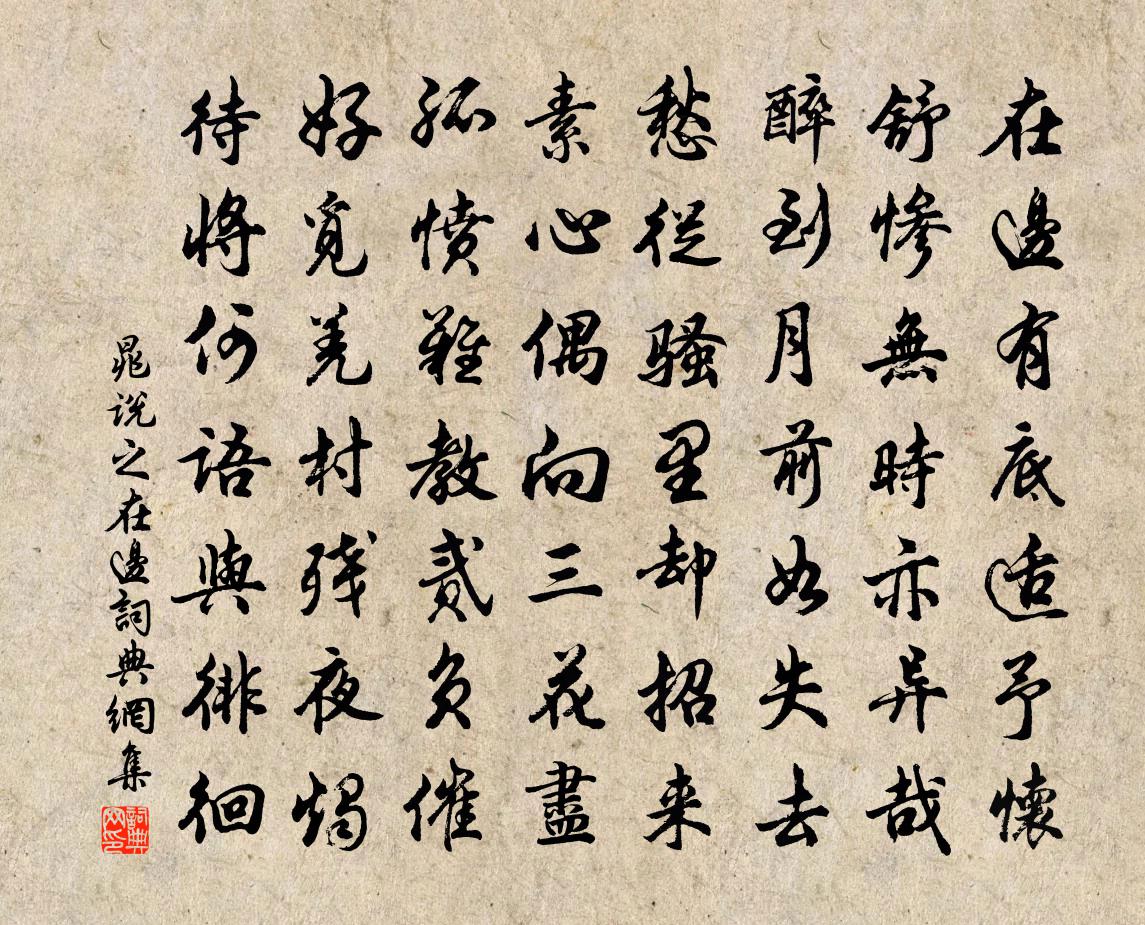 在邊有底适予懷
舒慘無時亦异哉
醉到月前如失去
愁從騷里却招来
素心偶向三花盡
孤憤難教貳负催
好覓羌村残夜燭
待將何語與徘徊
晁说之在邊詞典網集
詞典
网印